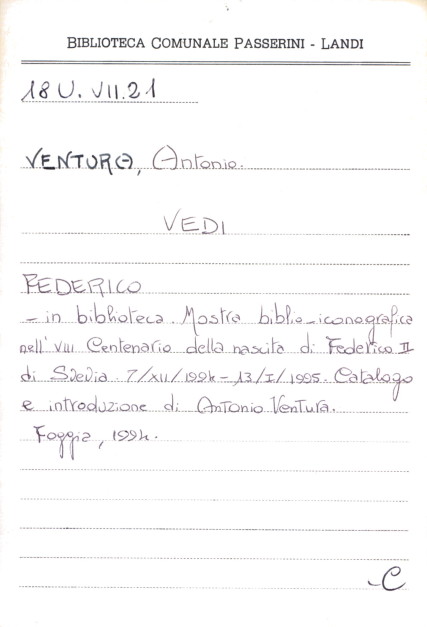 BIBLIOTECA COMUNALE PASSERINI - LANDI
18 U. VII.21
VENTURA, Antonio.
VEDI
FEDERICO
- in biblioteca. Mostra biblio-iconografica
nell'VIII Centenario della nascita di Federico II
di Svevia. 7/XII/1994 - 13/I/1995. Catalogo
e introduzione di Antonio Ventura.
Foggia, 1994.
-C